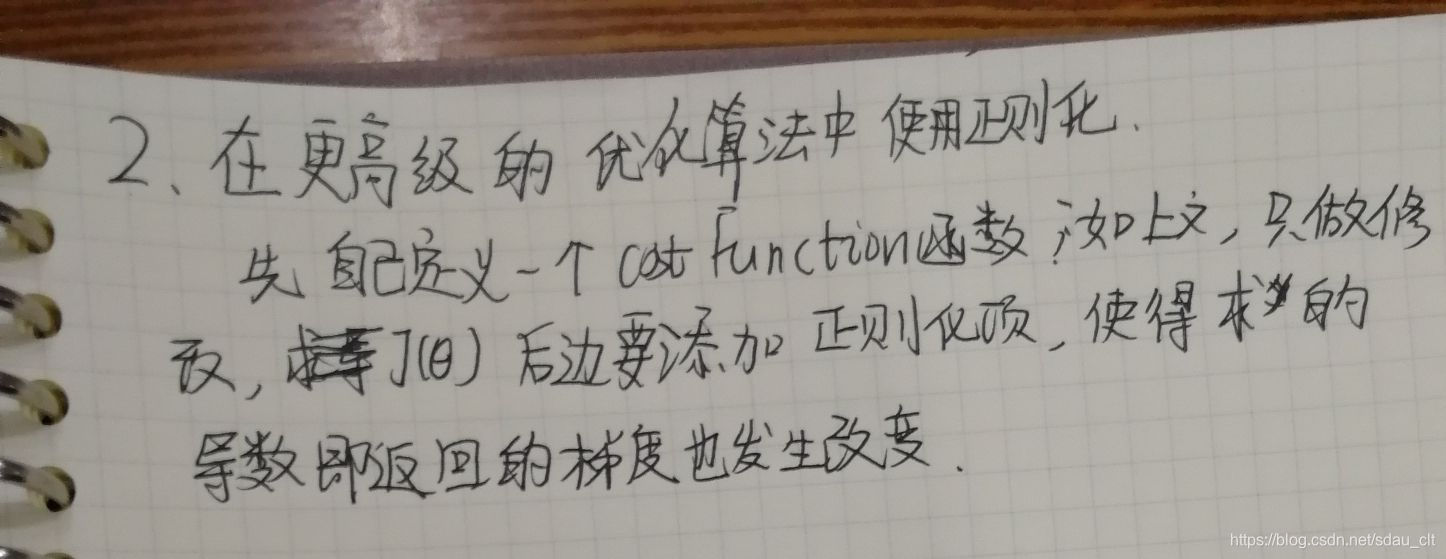 2、在更高级的优化算法中使用正则化.
先自己定义一个costFunction函数;如上文,只做修
改,J(θ)后边要添加正则化项,使得求的
导数即返回的梯度也发生改变.
https://blog.csdn.net/sdau_clt